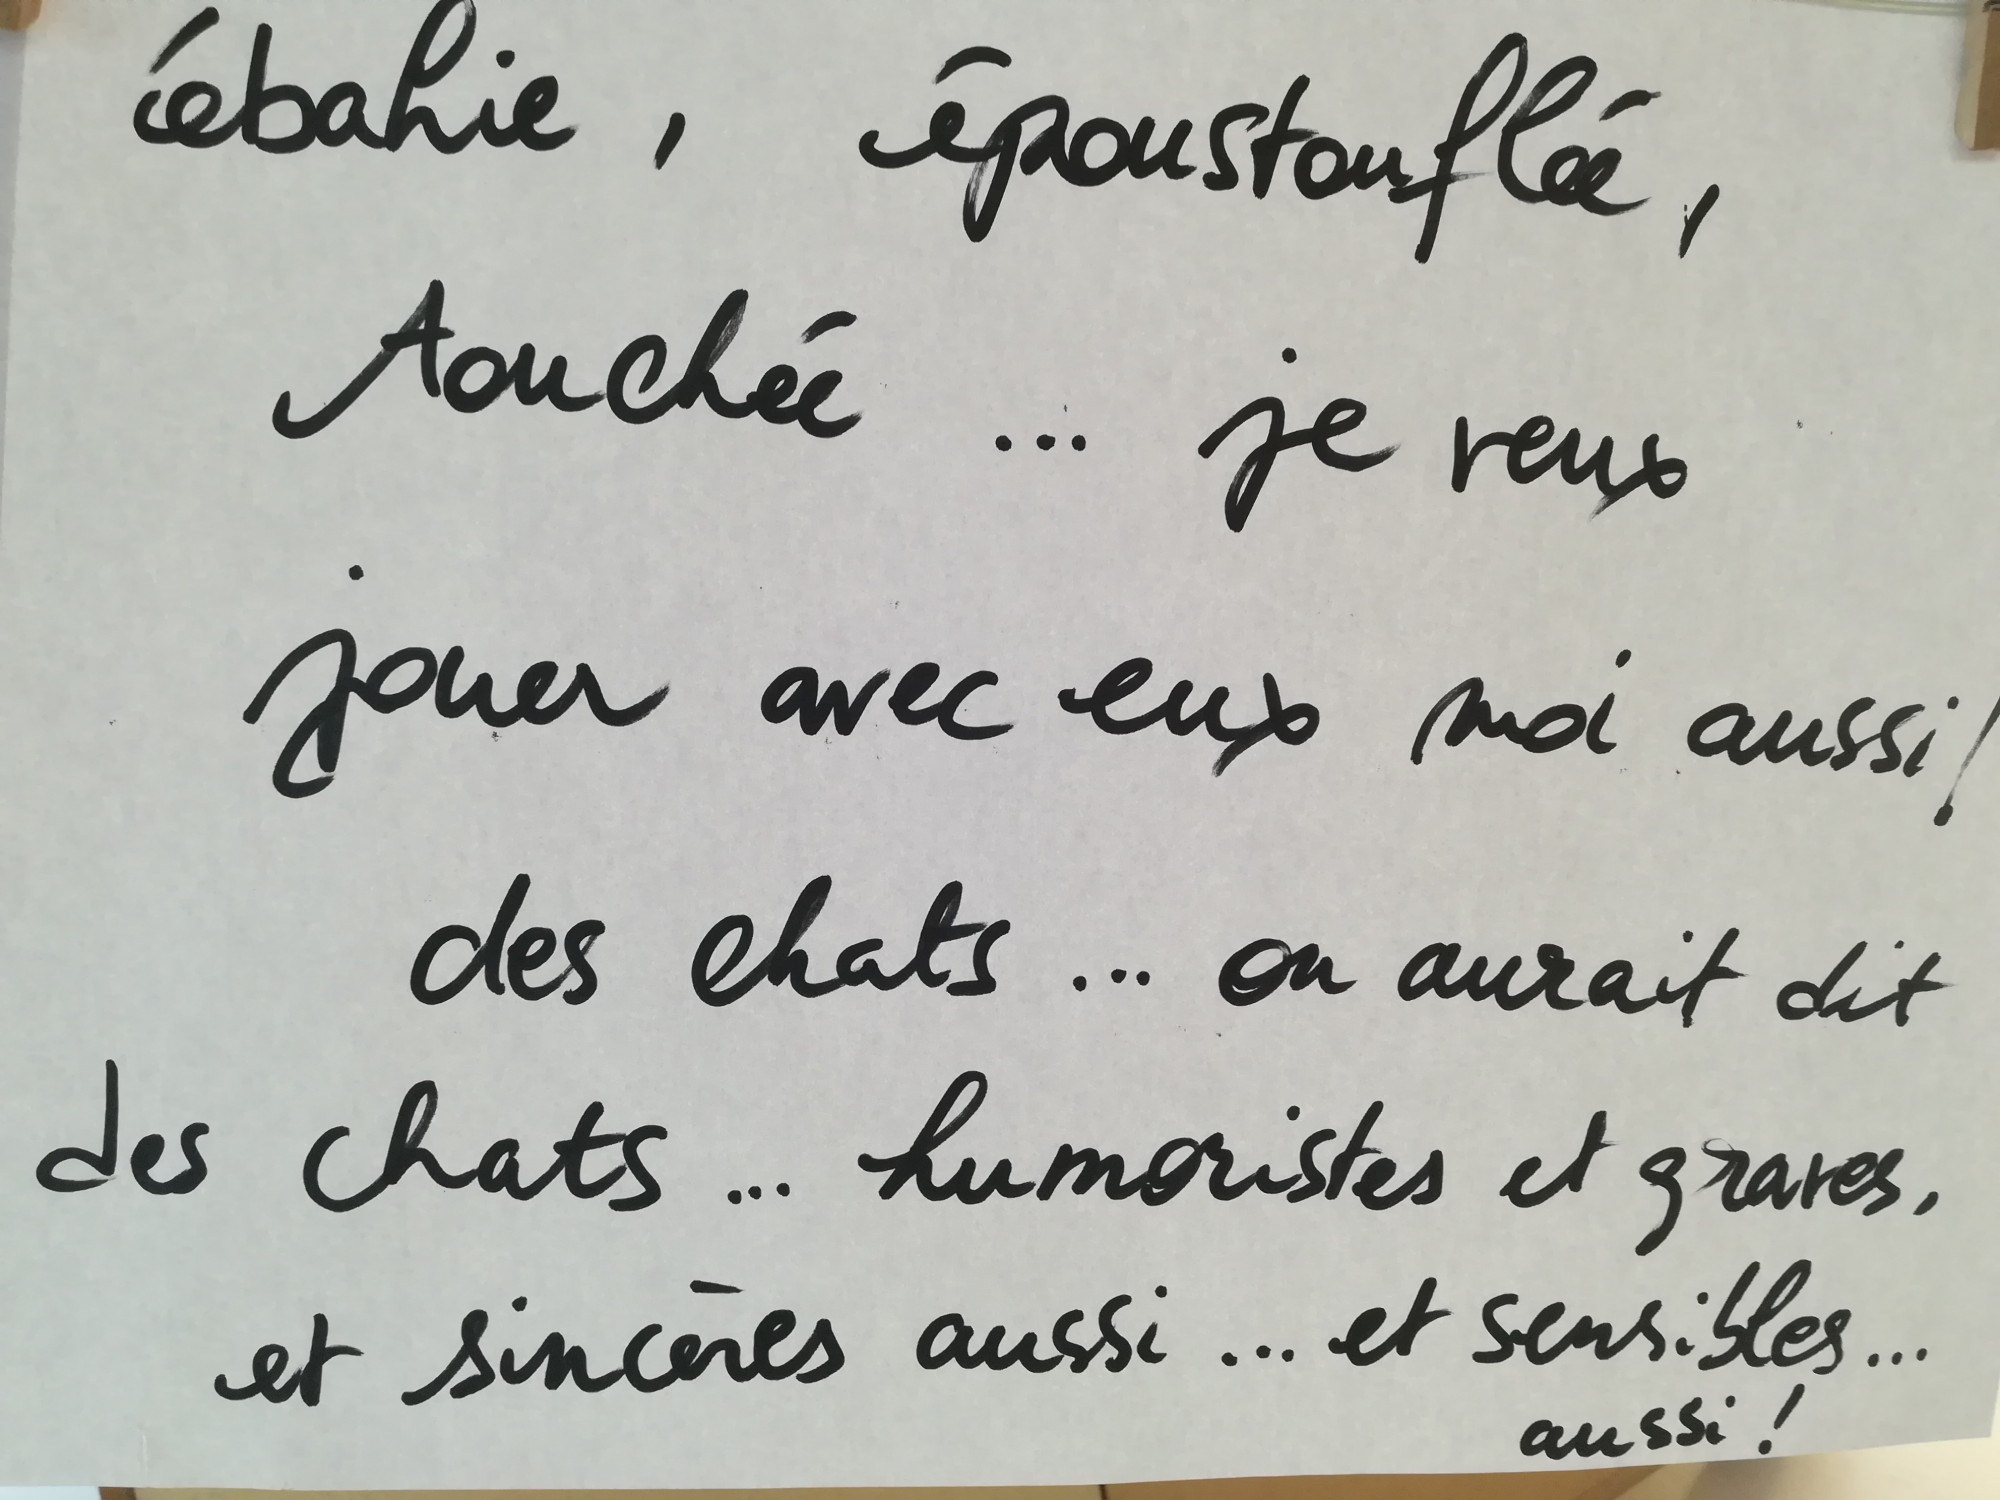 ébahie, époustouflée,
touchée ... je veux
jouer avec eux moi aussi!
des chats ... on aurait dit
des chats ... humoristes et graves,
et sincères aussi ... et sensibles ...
aussi!